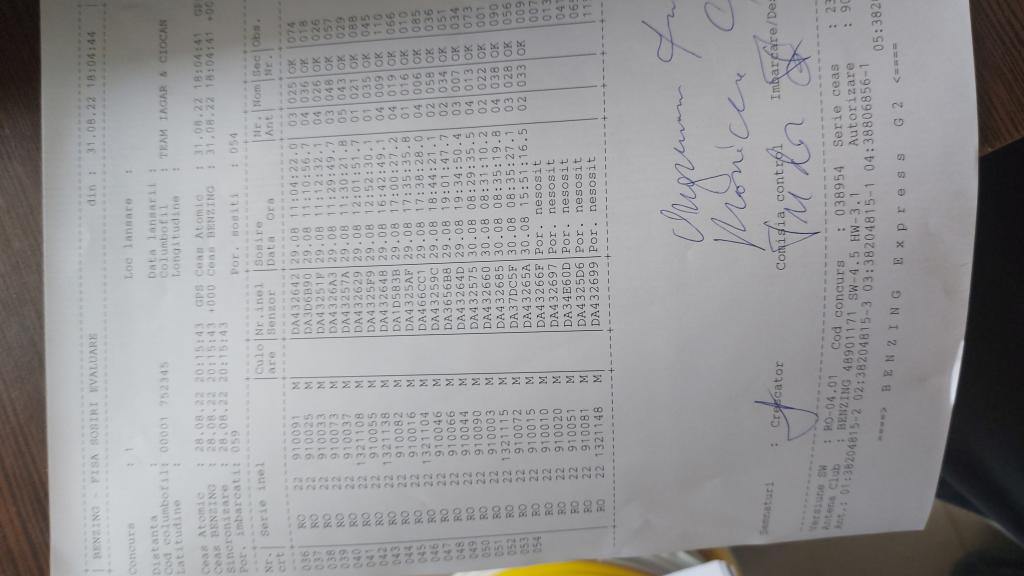 BENZING - FISA SOSIRI EVALUARE din : 31.08.22 18:04:44
Concurs : 1 Loc lansare :
Distanta : Data lansarii :
Cod columbofil: 00001 752345 Columbofil : TEAM IAGAR & CIOCAN
Latitudine : Longitudine :
Ceas Atomic : 28.08.22 20:15:43 GPS Ceas Atomic : 31.08.22 18:04:41
Ceas BENZING : 28.08.22 20:15:43 +000 Ceas BENZING : 31.08.22 18:04:41
Sincronizare : 28.08.22 20:15:43
Por. imbarcati: 059 Por. sositi : 054
Nr. Serie inel Culo Nr.inel Sosire Nr. Nom Sec Obs.
crt are Senzor Data Ora Ant Nr.
036 RO 22 910091 M DA432642 29.08 11:04:22.0 03 025 OK 074
037 RO 22 910025 M DA3D6B90 29.08 11:10:56.7 04 036 OK 018
038 RO 22 910033 M DA43251F 29.08 11:12:32.1 03 026 OK 026
039 RO 22 910073 M DA4326A3 29.08 11:29:49.7 03 048 OK 057
040 RO 22 910037 M DA43257A 29.08 11:30:21.8 05 043 OK 029
041 RO 22 1321108 M DA432629 29.08 12:01:51.7 01 021 OK 088
042 RO 22 910055 M DA4325F9 29.08 12:52:30.1 01 035 OK 045
043 RO 22 1321138 M DA432648 29.08 16:42:49.1 04 009 OK 110
044 RO 22 910082 M DA1D5B3B 29.08 17:00:27.2 04 011 OK 066
045 RO 22 910016 M DA4325AF 29.08 17:35:35.8 01 016 OK 010
046 RO 22 1321104 M DA466CC1 29.08 17:37:28.0 04 006 OK 085
047 RO 22 910046 M DA43259C 29.08 18:44:21.1 02 058 OK 036
048 RO 22 910066 M DA365598 29.08 19:01:47.7 02 034 OK 051
049 RO 22 910044 M DA43264D 29.08 19:34:50.4 03 007 OK 034
050 RO 22 910090 M DA432575 30.08 08:29:35.5 04 013 OK 073
051 RO 22 910003 M DA432660 30.08 08:31:10.2 02 022 OK 001
052 RO 22 1321115 M DA432685 30.08 08:35:19.8 04 038 OK 090
053 RO 22 910072 M DA37DC5F 30.08 08:35:27.1 03 028 OK 056
054 RO 22 910015 M DA43265A 30.08 15:51:16.5 02 033 OK 009
RO 22 910010 M DA43266F Por. nesosit
RO 22 910020 M DA432697 Por. nesosit
RO 22 910051 M DA34E60D Por. nesosit
RO 22 910081 M DA4325D6 Por. nesosit
RO 22 1321148 M DA432699 Por. nesosit
Semnaturi : Crescator Comisia control
Versiune SW : RO-04.01 Cod concurs : 038954 Serie ceas
Antena Club : BENZING 48901171 SW-4.5 HW-3.1 Autorizare
Ant.: 01:38204815-2 02:38204815-3 03:38204815-1 04:38806856-1
====> BENZING Express G2 <====